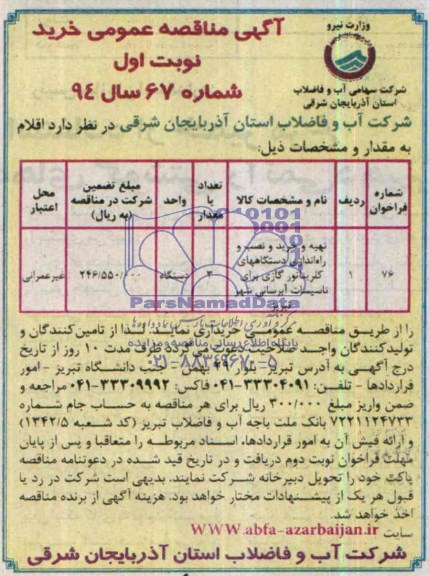 وزارت نیرو
شرکت سهامی آب و فاضلاب
استان آذربایجان شرقی
آگهی مناقصه عمومی خرید
نوبت اول
شماره ۶۷ سال ۹۴
شرکت آب و فاضلاب استان آذربایجان شرقی در نظر دارد اقلام
به مقدار و مشخصات ذیل:
شماره فراخوان ردیف نام و مشخصات کالا تعداد یا مقدار واحد مبلغ تضمین شرکت در مناقصه (به ریال) محل اعتبار
۷۶ ۱ تهیه و خرید و نصب و راه‌اندازی دستگاههای کلریناتور گازی برای تاسیسات آبرسانی شهر دستگاه غیرعمرانی
ParsNamadData
پایگاه اطلاع رسانی مناقصه و مزایده
۰۲۱-۸۸۳۴۹۶۷۰-۵
را از طریق مناقصه عمومی خریداری نماید. لذا از تامین‌کنندگان و
تولیدکنندگان واجد صلاحیت دعوت می‌گردد ظرف مدت ۱۰ روز از تاریخ
درج آگهی به آدرس تبریز - بلوار ۲۹ بهمن - جنب دانشگاه تبریز - امور
قراردادها - تلفن: ۳۳۳۰۴۰۹۱-۰۴۱ فاکس: ۳۳۳۰۹۹۹۲-۰۴۱ مراجعه و
ضمن واریز مبلغ ۳۰۰/۰۰۰ ریال برای هر مناقصه به حساب جام شماره
۷۲۲۱۱۲۴۷۳۳ بانک ملت باجه آب و فاضلاب تبریز (کد شعبه ۱۳۴۲/۵)
و ارائه فیش آن به امور قراردادها، اسناد مربوطه را متعاقبا و پس از پایان
مهلت فراخوان نوبت دوم دریافت و در تاریخ قید شده در دعوتنامه مناقصه
پاکت خود را تحویل دبیرخانه شرکت نمایند. بدیهی است شرکت در رد یا
قبول هر یک از پیشنهادات مختار خواهد بود. هزینه آگهی از برنده مناقصه
اخذ خواهد شد.
سایت WWW.abfa-azarbaijan.ir
شرکت آب و فاضلاب استان آذربایجان شرقی